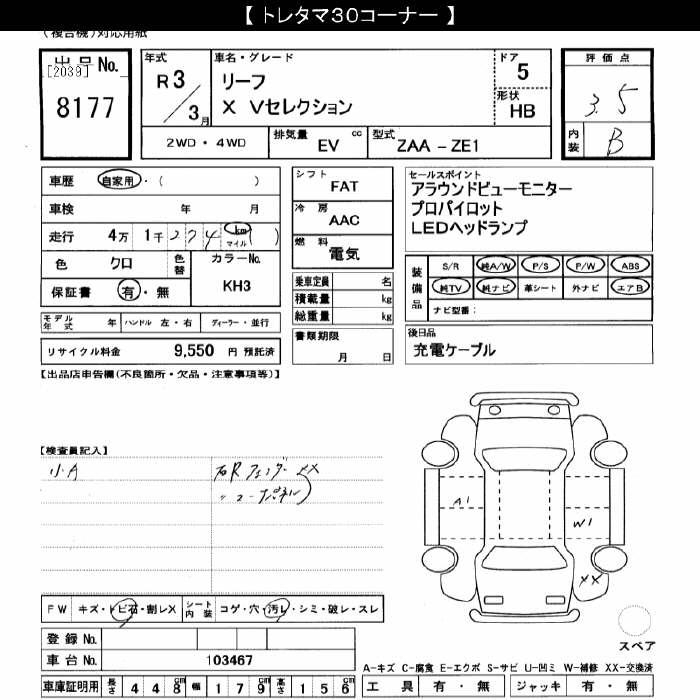 【 トレタマ30コーナー 】
(複合機)対応用紙
出品No.
[2039]
8177
年式
R3/3月
車名・グレード
リーフ
X Vセレクション
ドア
5
形状
HB
評価点
3.5
内装
B
2WD・4WD
排気量 EV cc
型式 ZAA-ZE1
車歴 自家用・( )
車検 年 月
走行 4万 1千 274 km マイル ( )
色 クロ 色替
カラーNo.
KH3
保証書 有・無
モデル年式 年 ハンドル 左・右 ディーラー・並行
リサイクル料金 9,550 円 預託済
シフト
FAT
冷房
AAC
燃料
電気
乗車定員 名
積載量 kg
総重量 kg
書類期限
月 日
セールスポイント
アラウンドビューモニター
プロパイロット
LEDヘッドランプ
装備品
S/R 純A/W P/S P/W ABS
純TV 純ナビ 革シート 外ナビ エアB
ナビ型番:
後日品
充電ケーブル
【出品店申告欄(不良箇所・欠品・注意事項等)】
【検査員記入】
小A
右Rフェンダー XX
〃 コーナーパネル)
A1
W1
XX
FW キズ・トビ石・割レX シート内装 コゲ・穴・汚レ・シミ・破レ・スレ
登録No.
車台No. 103467
スペア
A-キズ C-腐食 E-エクボ S-サビ U-凹ミ W-補修 XX-交換済
車庫証明用 長さ 448cm 幅 179cm 高さ 156cm
工具 有・無 ジャッキ 有・無